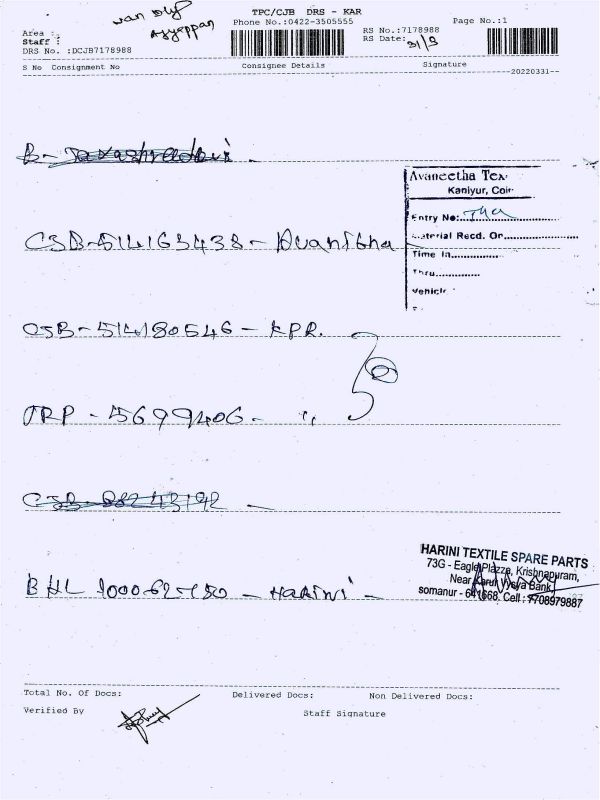 van Dly
Ayyappan
TPC/CJB DRS - KAR
Phone No.:0422-3505555
Page No.:1
Area :
Staff :
DRS No. :DCJB7178988
RS No.:7178988
RS Date: 31/3
S No Consignment No Consignee Details Signature
20220331
B-
Avaneetha Tex
Kaniyur, Coi
Entry No:
Material Recd. On
Time In
Thru
Vehicle
CJB-514163438 - Avanitha
CJB-514180546 - KPR.
TRP - 5699406 - "
CJB-
HARINI TEXTILE SPARE PARTS
73G - Eagle Plazza, Krishnapuram,
Near Karur Vysya Bank
somanur - 641668. Cell : 7708979887
BHL - HARINI -
Total No. Of Docs: Delivered Docs: Non Delivered Docs:
Verified By Staff Signature